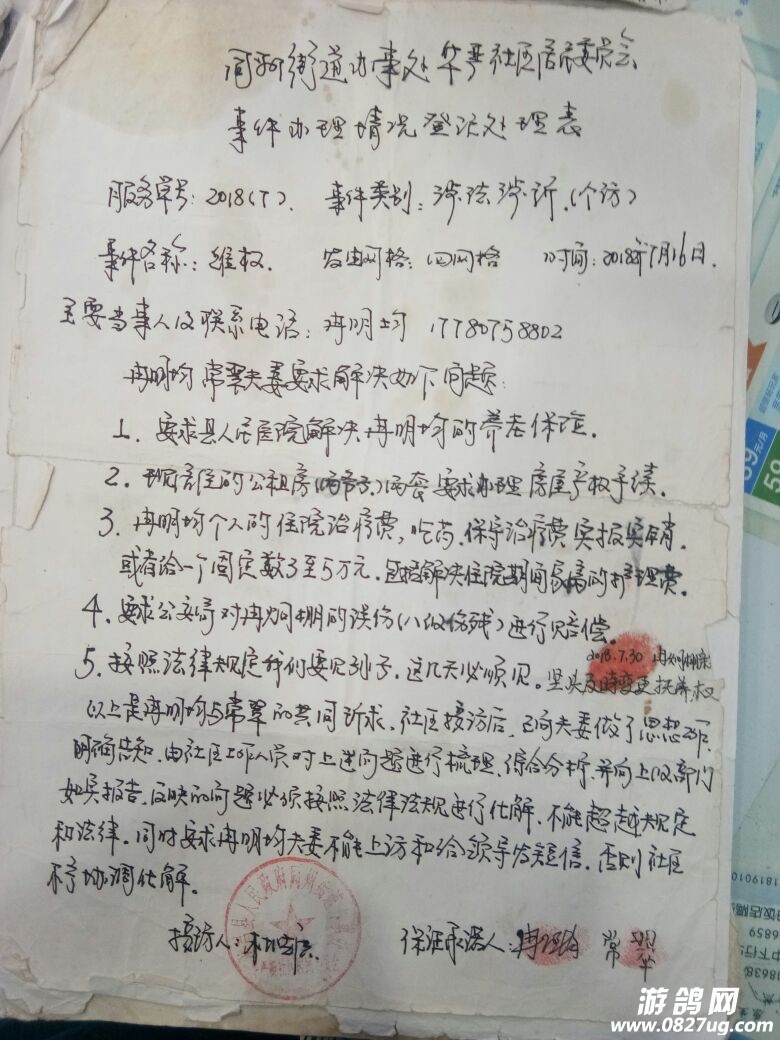 同州街道办事处华严社区居民委员会
事件办理情况登记处理表
服务单号：2018(7). 事件类别：涉法涉诉.(个访)
事件名称：维权. 发生网格：四网格 时间：2018年7月16日.
主要当事人及联系电话：冉明均 17780758802
冉明均 常翠夫妻要求解决如下问题：
1. 要求县人民医院解决冉明均的养老保险.
2. 现居住的公租房(两节子)两套要求办理房屋产权手续.
3. 冉明均个人的住院治疗费,吃药.保守治疗费实报实销.
或者给一个固定数3至5万元.包括解决住院期间家属的护理费.
4. 要求公安局对冉炯棚的误伤(八级伤残)进行赔偿.
2018.7.30
5. 按照法律规定我们要见孙子.这几天必须见. 坚决及時变更抚养权
以上是冉明均与常翠的共同诉求.社区接访后,已向夫妻做了思想工作.
明确告知.由社区工作人员对上述问题进行梳理.综合分析.并向上级部门
如实报告.反映的问题必须按照法律法规进行化解.不能超越规定
和法律.同时要求冉明均夫妻不能上访和给领导发短信.否则社区
不予协调化解.
接访人： 保证承诺人：冉明均 常翠
游鸽网
www.0827ug.com